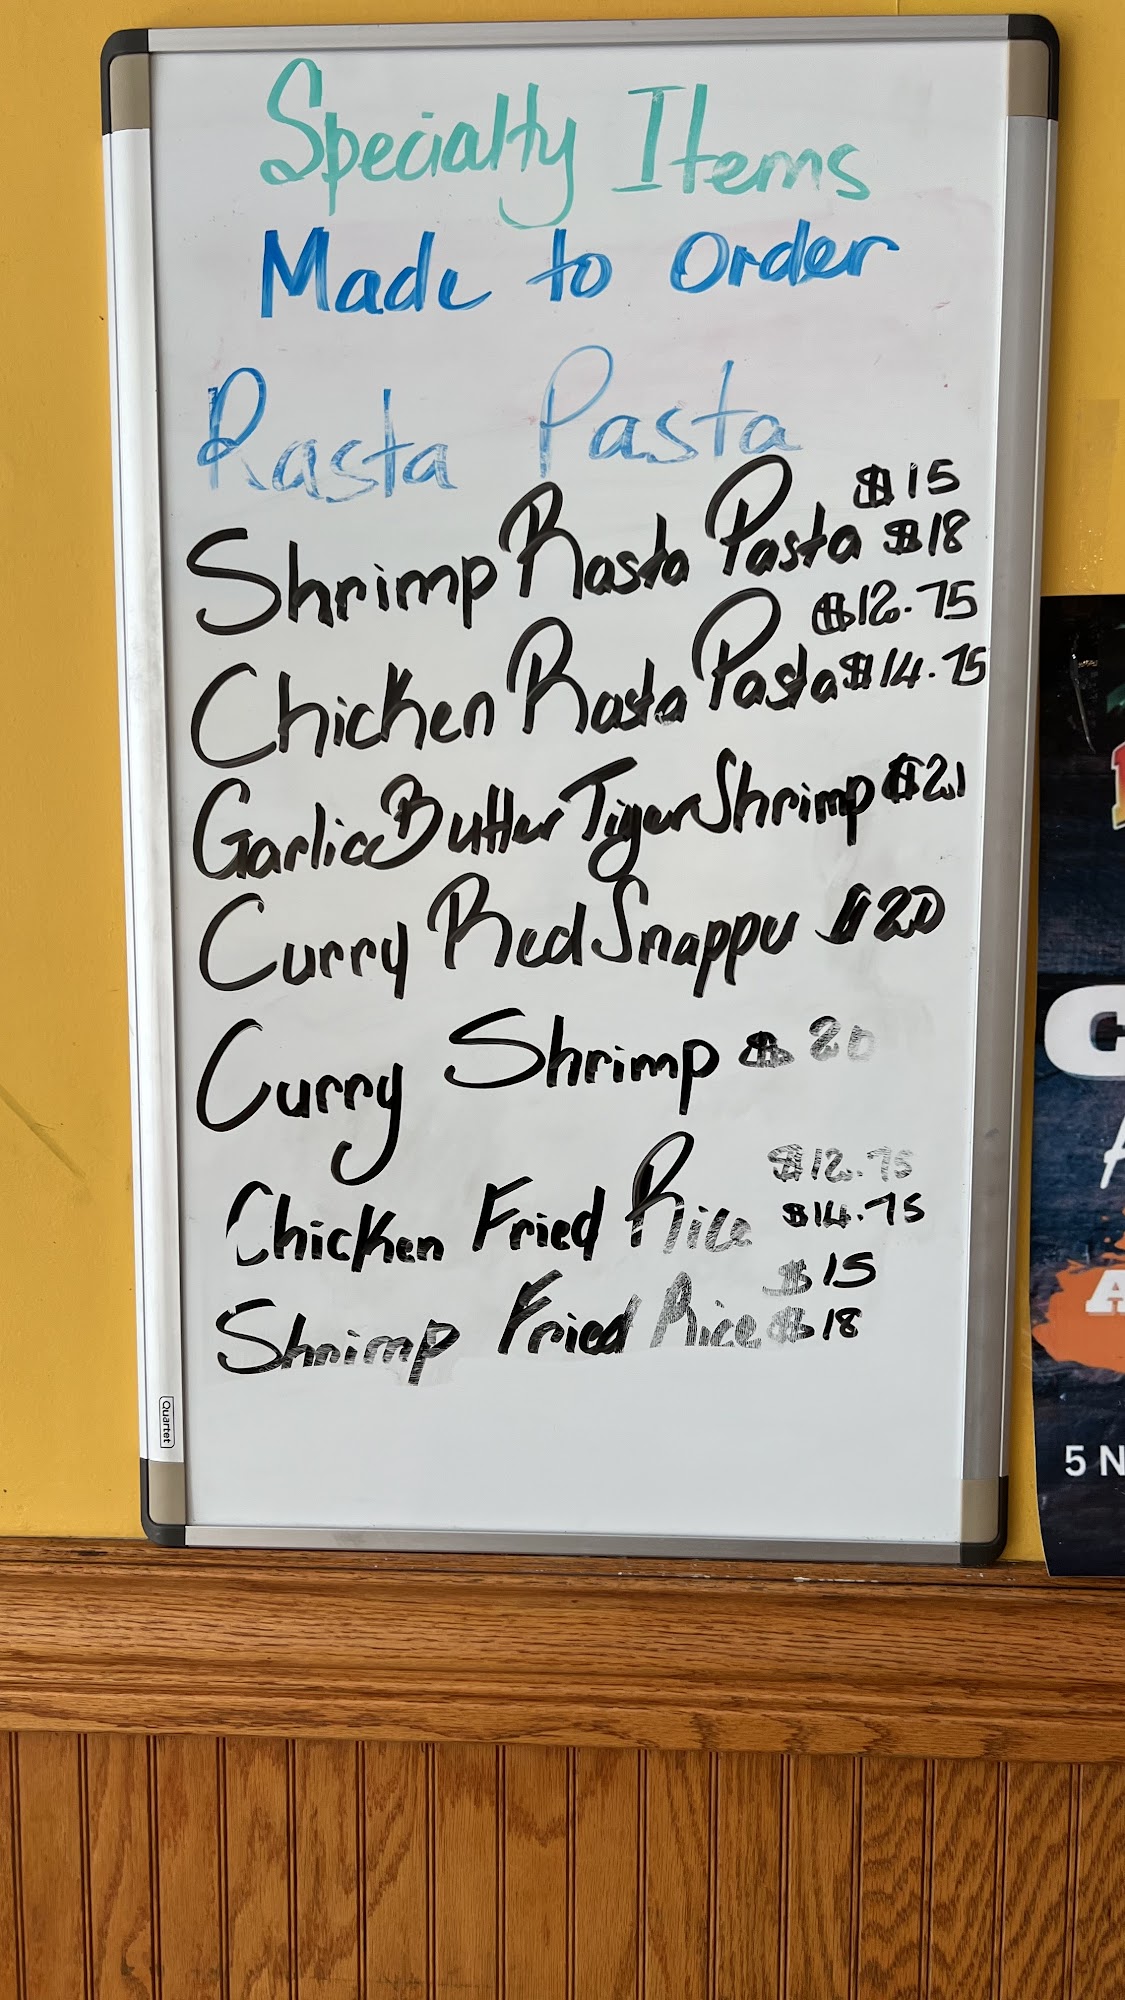 Specialty Items
Made to Order
Rasta Pasta
$15
Shrimp Rasta Pasta $18
$12.75
Chicken Rasta Pasta $14.75
Garlic Butter Tiger Shrimp $21
Curry Red Snapper $20
Curry Shrimp $20
$12.75
Chicken Fried Rice $14.75
$15
Shrimp Fried Rice $18
Quartet
C
A
5 N